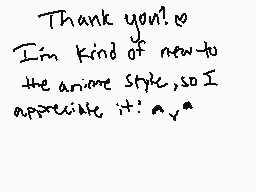 Thank you! ♥
I'm kind of new to
the anime style, so I
appreciate it! ^v^